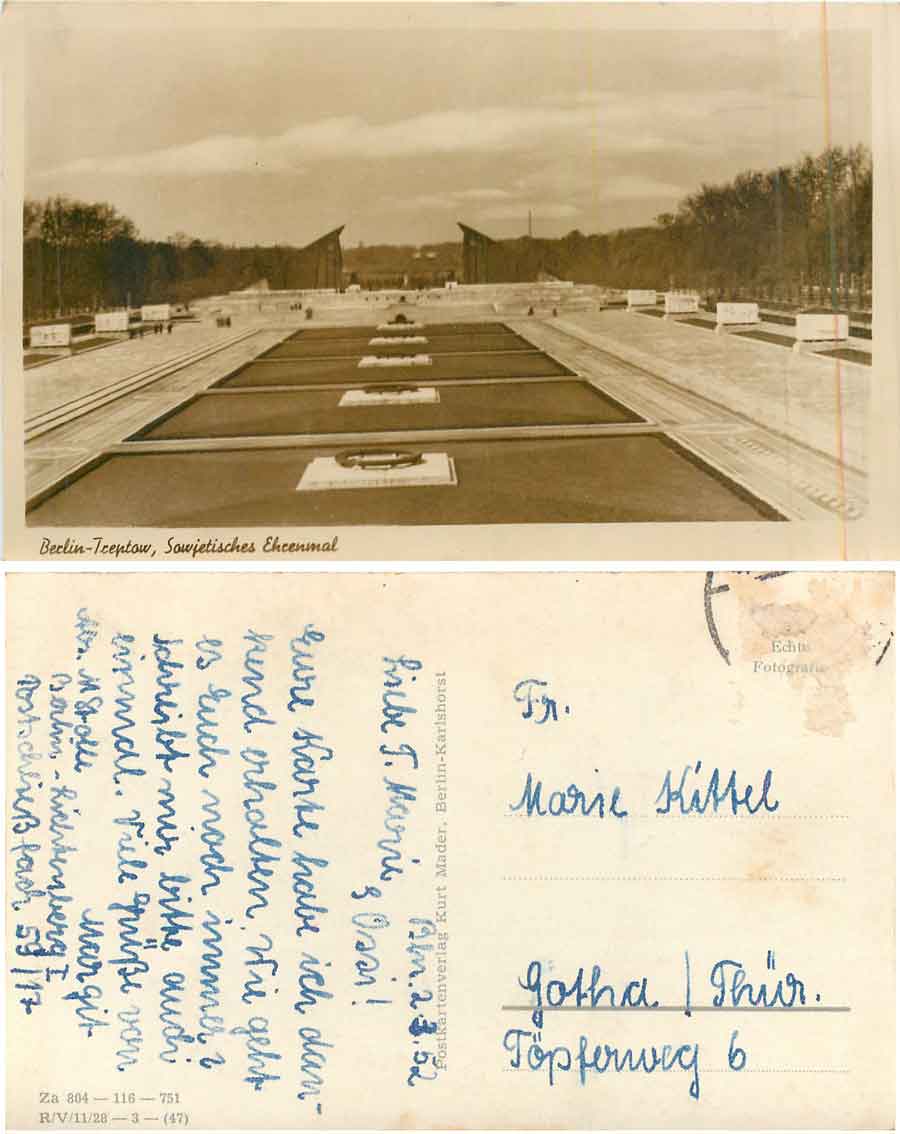 Berlin-Treptow, Sowjetisches Ehrenmal
Bln. 2.3.52
Liebe T. Marie & Ossi!
Eure Karte habe ich dan-
kend erhalten. Wie geht
es Euch noch immer?
Schreibt mir bitte auch
einmal. Viele Grüße von
Margit
Abs. M
Berlin-Lichtenberg I
Postschließfach 59/17
Postkartenverlag Kurt Mader, Berlin-Karlshorst
Echte
Fotografie
Fr.
Marie Kittel
Gotha / Thür.
Töpferweg 6
Za 804 — 116 — 751
R/V/11/28 — 3 — (47)